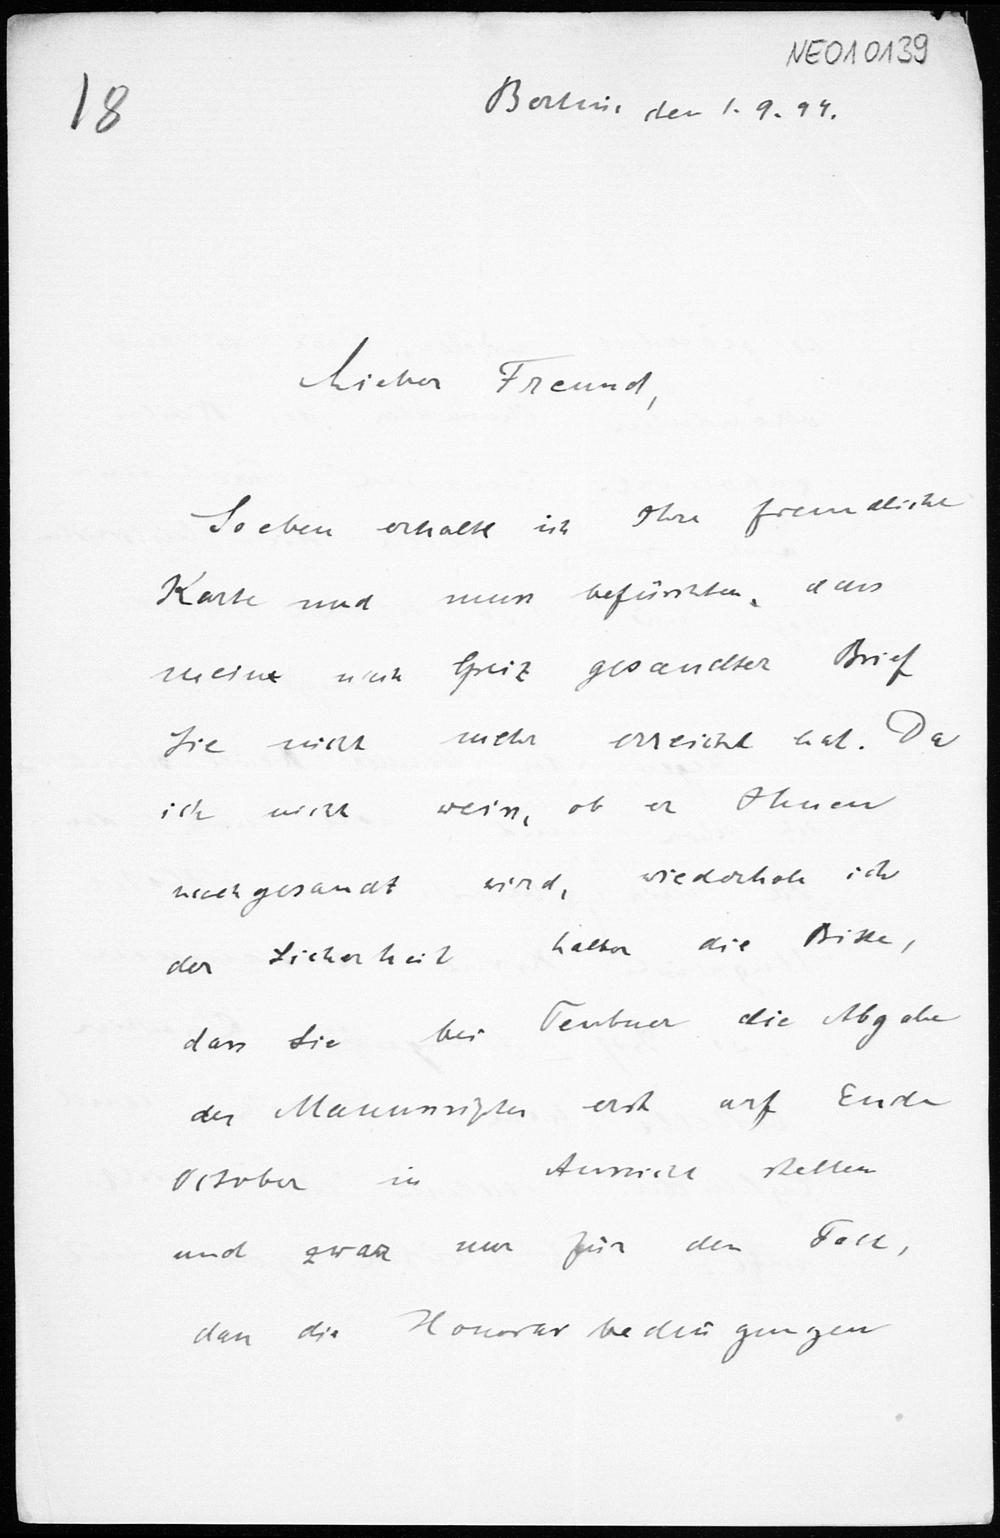 NE010139
18
Berlin, den 1. 9. 94.
Lieber Freund,
Soeben erhalte ich Ihre freundliche
Karte und muss befürchten, dass
meine nach Greiz gesandter Brief
Sie nicht mehr erreicht hat. Da
ich nicht weiss, ob er Ihnen
nachgesandt wird, wiederhole ich
der Sicherheit halber die Bitte,
dass Sie bei Teubner die Abgabe
des Manuscriptes erst auf Ende
October in Aussicht stellen
und zwar nur für den Fall,
dass die Honorarbedingungen